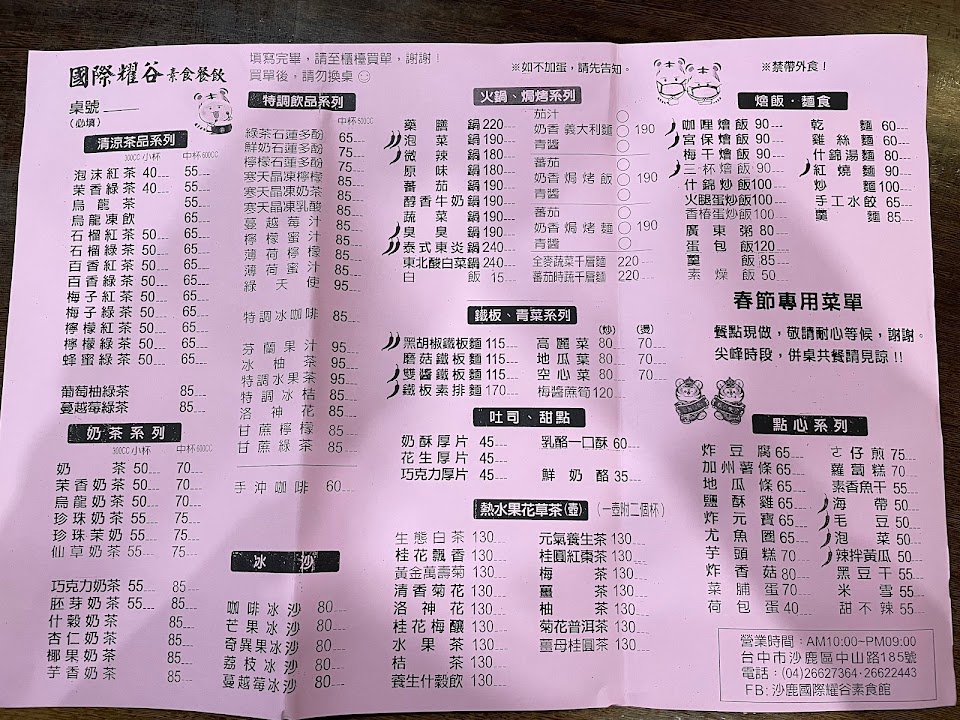 國際耀谷素食餐飲
填寫完畢，請至櫃檯買單，謝謝！
買單後，請勿換桌
※如不加蛋，請先告知。
※禁帶外食！
桌號
(必填)
清涼茶品系列
300CC小杯 中杯600CC
泡沫紅茶 40 55
茉香綠茶 40 55
烏龍茶 55
烏龍凍飲 65
石榴紅茶 50 65
石榴綠茶 50 65
百香紅茶 50 65
百香綠茶 50 65
梅子紅茶 50 65
梅子綠茶 50 65
檸檬紅茶 50 65
檸檬綠茶 50 65
蜂蜜綠茶 50 65
葡萄柚綠茶 85
蔓越莓綠茶 85
奶茶系列
300CC小杯 中杯600CC
奶茶 50 70
茉香奶茶 50 70
烏龍奶茶 50 70
珍珠奶茶 55 75
珍珠茉奶 55 75
仙草奶茶 55 75
巧克力奶茶 55 85
胚芽奶茶 55 85
什穀奶茶 85
杏仁奶茶 85
椰果奶茶 85
芋香奶茶 85
特調飲品系列
中杯500CC
綠茶石蓮多酚 65
鮮奶石蓮多酚 75
檸檬石蓮多酚 75
寒天晶凍檸檬 85
寒天晶凍奶茶 85
寒天晶凍乳酸 85
蔓越莓汁 85
檸檬蜜汁 85
薄荷檸檬 85
薄荷蜜汁 85
綠天使 95
特調冰咖啡 85
芬蘭果汁 95
冰柚茶 95
特調水果茶 95
特調冰桔 85
洛神花 85
甘蔗檸檬 85
甘蔗綠茶 85
手沖咖啡 60
冰沙
咖啡冰沙 80
芒果冰沙 80
奇異果冰沙 80
荔枝冰沙 80
蔓越莓冰沙 80
火鍋、焗烤系列
藥膳鍋 220
泡菜鍋 190
微辣鍋 180
原味鍋 180
蕃茄鍋 190
醇香牛奶鍋 190
蔬菜鍋 190
臭臭鍋 190
泰式東炎鍋 240
東北酸白菜鍋 240
白飯 15
茄汁
奶香 義大利麵 190
青醬
蕃茄
奶香 焗烤飯 190
青醬
蕃茄
奶香焗烤麵 190
青醬
全麥蔬菜千層麵 220
蕃茄時蔬千層麵 220
鐵板、青菜系列
(炒) (燙)
黑胡椒鐵板麵 115
蘑菇鐵板麵 115
雙醬鐵板麵 115
鐵板素排麵 170
高麗菜 80 70
地瓜葉 80 70
空心菜 80 70
梅醬蔴筍 120
吐司、甜點
奶酥厚片 45
花生厚片 45
巧克力厚片 45
乳酪一口酥 60
鮮奶酪 35
熱水果花草茶(壺) (一壺附二個杯)
生態白茶 130
桂花飄香 130
黃金萬壽菊 130
清香菊花 130
洛神花 130
桂花梅釀 130
水果茶 130
桔茶 130
養生什穀飲 130
元氣養生茶 130
桂圓紅棗茶 130
梅茶 130
薑茶 130
柚茶 130
菊花普洱茶 130
薑母桂圓茶 130
燴飯・麵食
咖哩燴飯 90
宮保燴飯 90
梅干燴飯 90
三杯燴飯 90
什錦炒飯 100
火腿蛋炒飯 100
香椿蛋炒飯 100
廣東粥 80
蛋包飯 120
羹飯 85
素燥飯 50
乾麵 60
雞絲麵 60
什錦湯麵 80
紅燒麵 90
炒麵 100
手工水餃 65
羹麵 85
春節專用菜單
餐點現做，敬請耐心等候，謝謝。
尖峰時段，併桌共餐請見諒！！
點心系列
炸豆腐 65
加州薯條 65
地瓜條 65
鹽酥雞 65
炸元寶 65
尤魚圈 65
芋頭糕 70
炸香菇 80
菜脯蛋 70
荷包蛋 40
古仔煎 75
蘿蔔糕 70
素香魚干 55
海帶 50
毛豆 50
泡菜 50
辣拌黃瓜 50
黑豆干 55
米雪 55
甜不辣 55
營業時間：AM10:00~PM09:00
台中市沙鹿區中山路185號
電話：(04)26627364‧26622443
FB: 沙鹿國際耀谷素食館